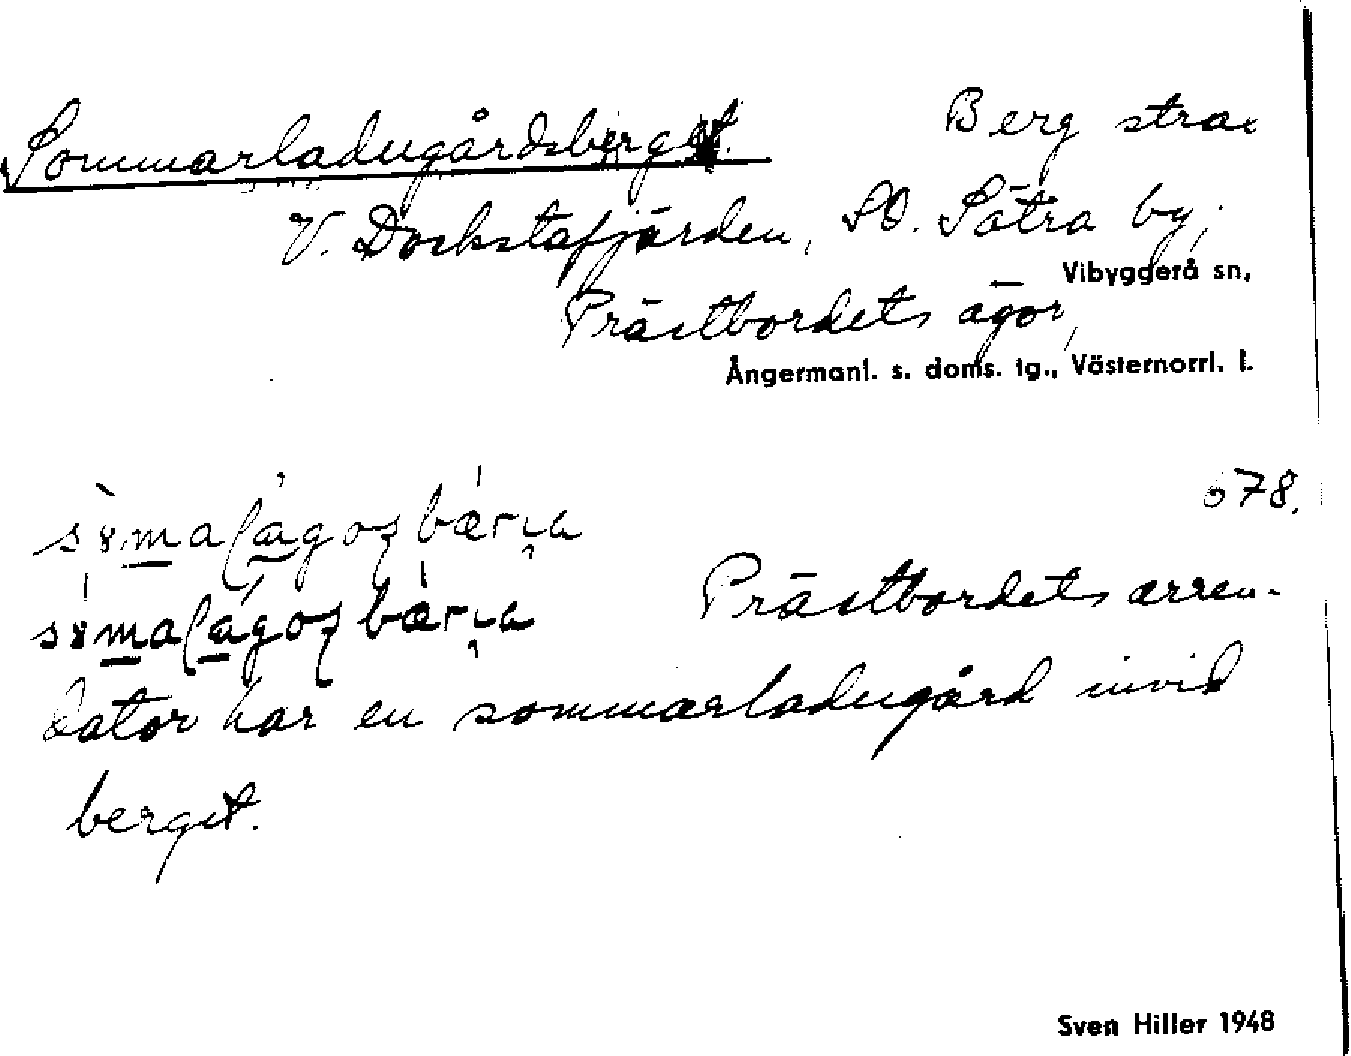 Sommarladugårdsberget. Berg strax
V. Dockstafjärden, SO. Sätra by,
Vibyggerå sn,
Prästbordets ägor,
Ångermanl. s. doms. tg., Västernorrl. l.
678.
Prästbordets arren-
dator har en sommarladugård invid
berget.
Sven Hiller 1948